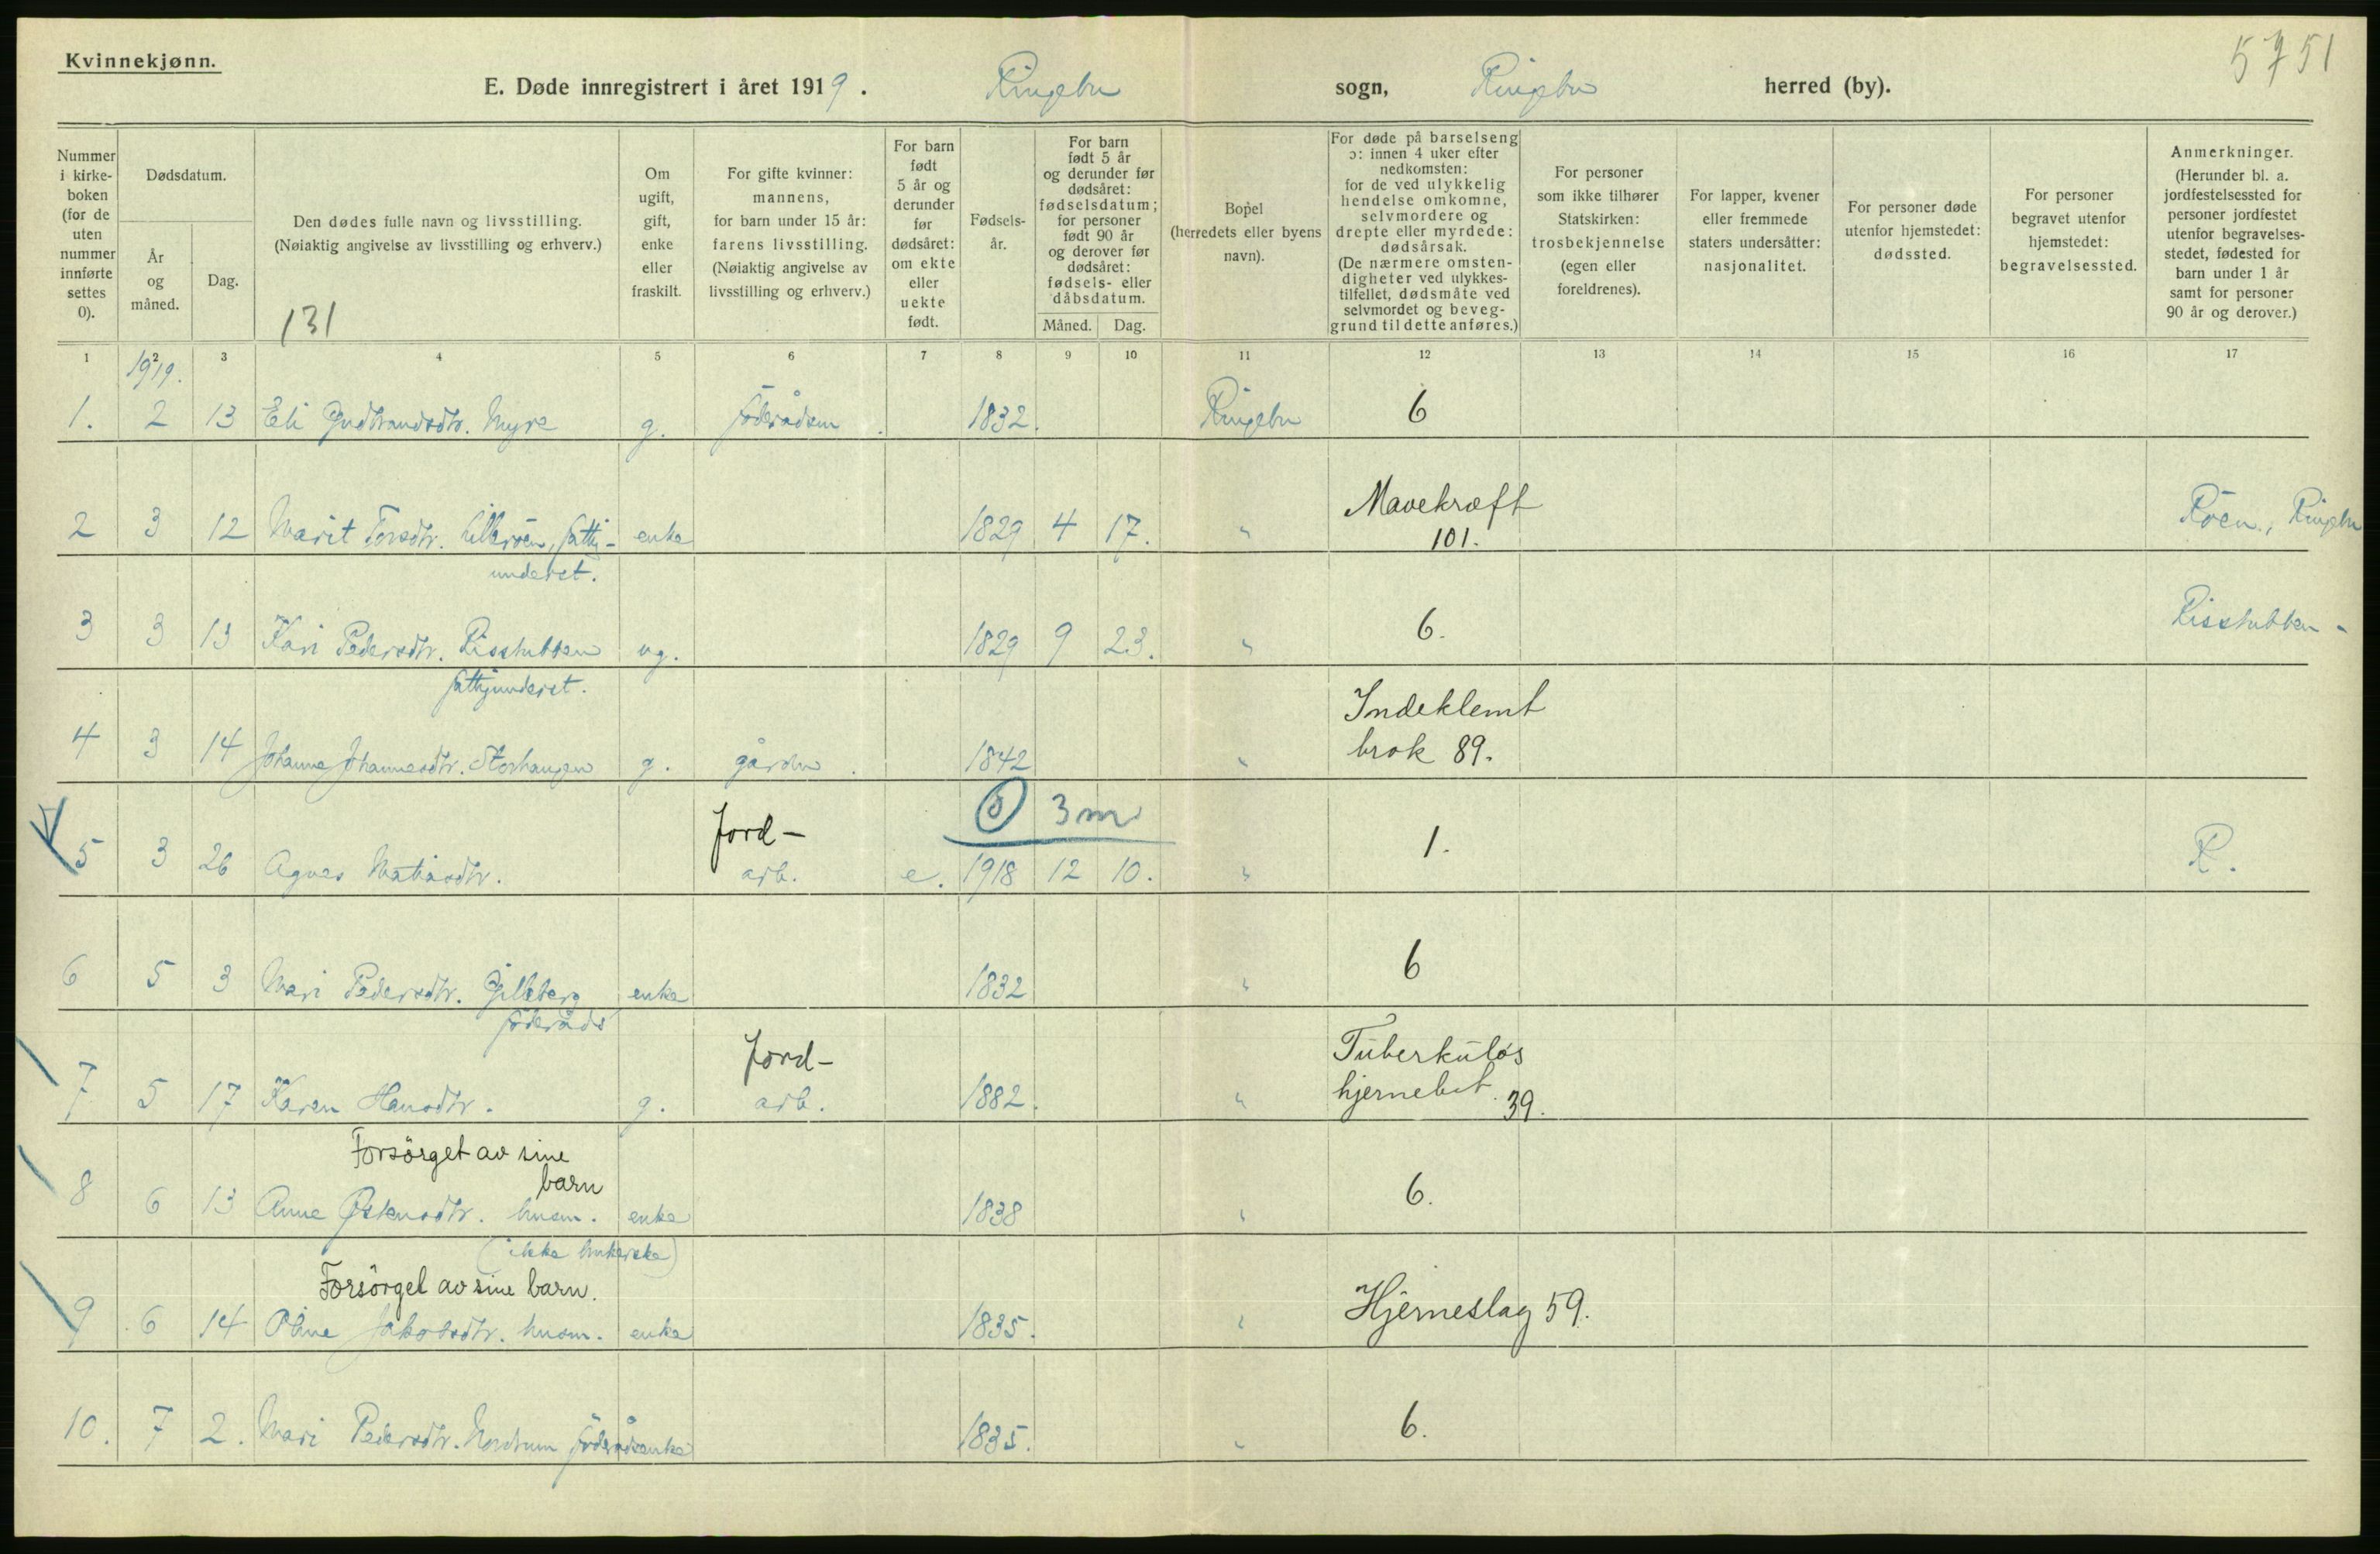 Kvinnekjønn.
5751
E. Døde innregistrert i året 1919. Ringebu sogn, Ringebu herred (by).
Nummer i kirke-boken (for de uten nummer innførte settes 0).
Dødsdatum.
År og måned.
Dag.
Den dødes fulle navn og livsstilling.
(Nøiaktig angivelse av livsstilling og erhverv.)
131
Om ugift, gift, enke eller fraskilt.
For gifte kvinner: mannens, for barn under 15 år: farens livsstilling. (Nøiaktig angivelse av livsstilling og erhverv.)
For barn født 5 år og derunder før dødsåret: om ekte eller uekte født.
Fødsels-år.
For barn født 5 år og derunder før dødsåret: fødselsdatum; for personer født 90 år og derover før dødsåret: fødsels- eller dåbsdatum.
Måned. Dag.
Bopel (herredets eller byens navn).
For døde på barselseng ɔ: innen 4 uker efter nedkomsten: for de ved ulykkelig hendelse omkomne, selvmordere og drepte eller myrdede: dødsårsak. (De nærmere omsten-digheter ved ulykkes-tilfellet, dødsmåte ved selvmordet og beveg-grund til dette anføres.)
For personer som ikke tilhører Statskirken: trosbekjennelse (egen eller foreldrenes).
For lapper, kvener eller fremmede staters undersåtter: nasjonalitet.
For personer døde utenfor hjemstedet: dødssted.
For personer begravet utenfor hjemstedet: begravelsessted.
Anmerkninger. (Herunder bl. a. jordfestelsessted for personer jordfestet utenfor begravelses-stedet, fødested for barn under 1 år samt for personer 90 år og derover.)
1 2 3 4 5 6 7 8 9 10 11 12 13 14 15 16 17
1919.
1. 2 13 Eli Gudbrandsdtr. Myre g. föderådsm. 1832. Ringebu 6
Mavekræft
2 3 12 Marit Torsdtr. Ulleröen, fattig- enke 1829 4 17. " 101. Röen, Ringebu
underst.
3 3 13 Kari Pedersdtr. Risstubben ug. 1829 9 23. " 6. Risstubben -
fattigunderst.
Indeklemt
4 3 14 Johanne Johannesdtr. Storhaugen g. gårdbr. 1842 " brok 89.
Jord- 3 m
5 3 26 Agnes Matiasdtr. arb. e. 1918 12 10. " 1. R.
6 5 3 Mari Pedersdtr. Gilleberg enke 1832 " 6
föderåds
Jord- Tuberkuløs
7 5 17 Karen Hansdtr. g. arb. 1882. " hjernebet. 39.
Forsörget av sine
barn
8 6 13 Anne Østensdtr. husm. enke 1838 " 6.
(ikke brukerske)
Forsörget av sine barn.
9 6 14 Jakobsdtr. husm. enke 1835. " Hjerneslag 59.
10. 7 2. Mari Pedersdtr. Nordrum föderådsenke 1835. " 6.